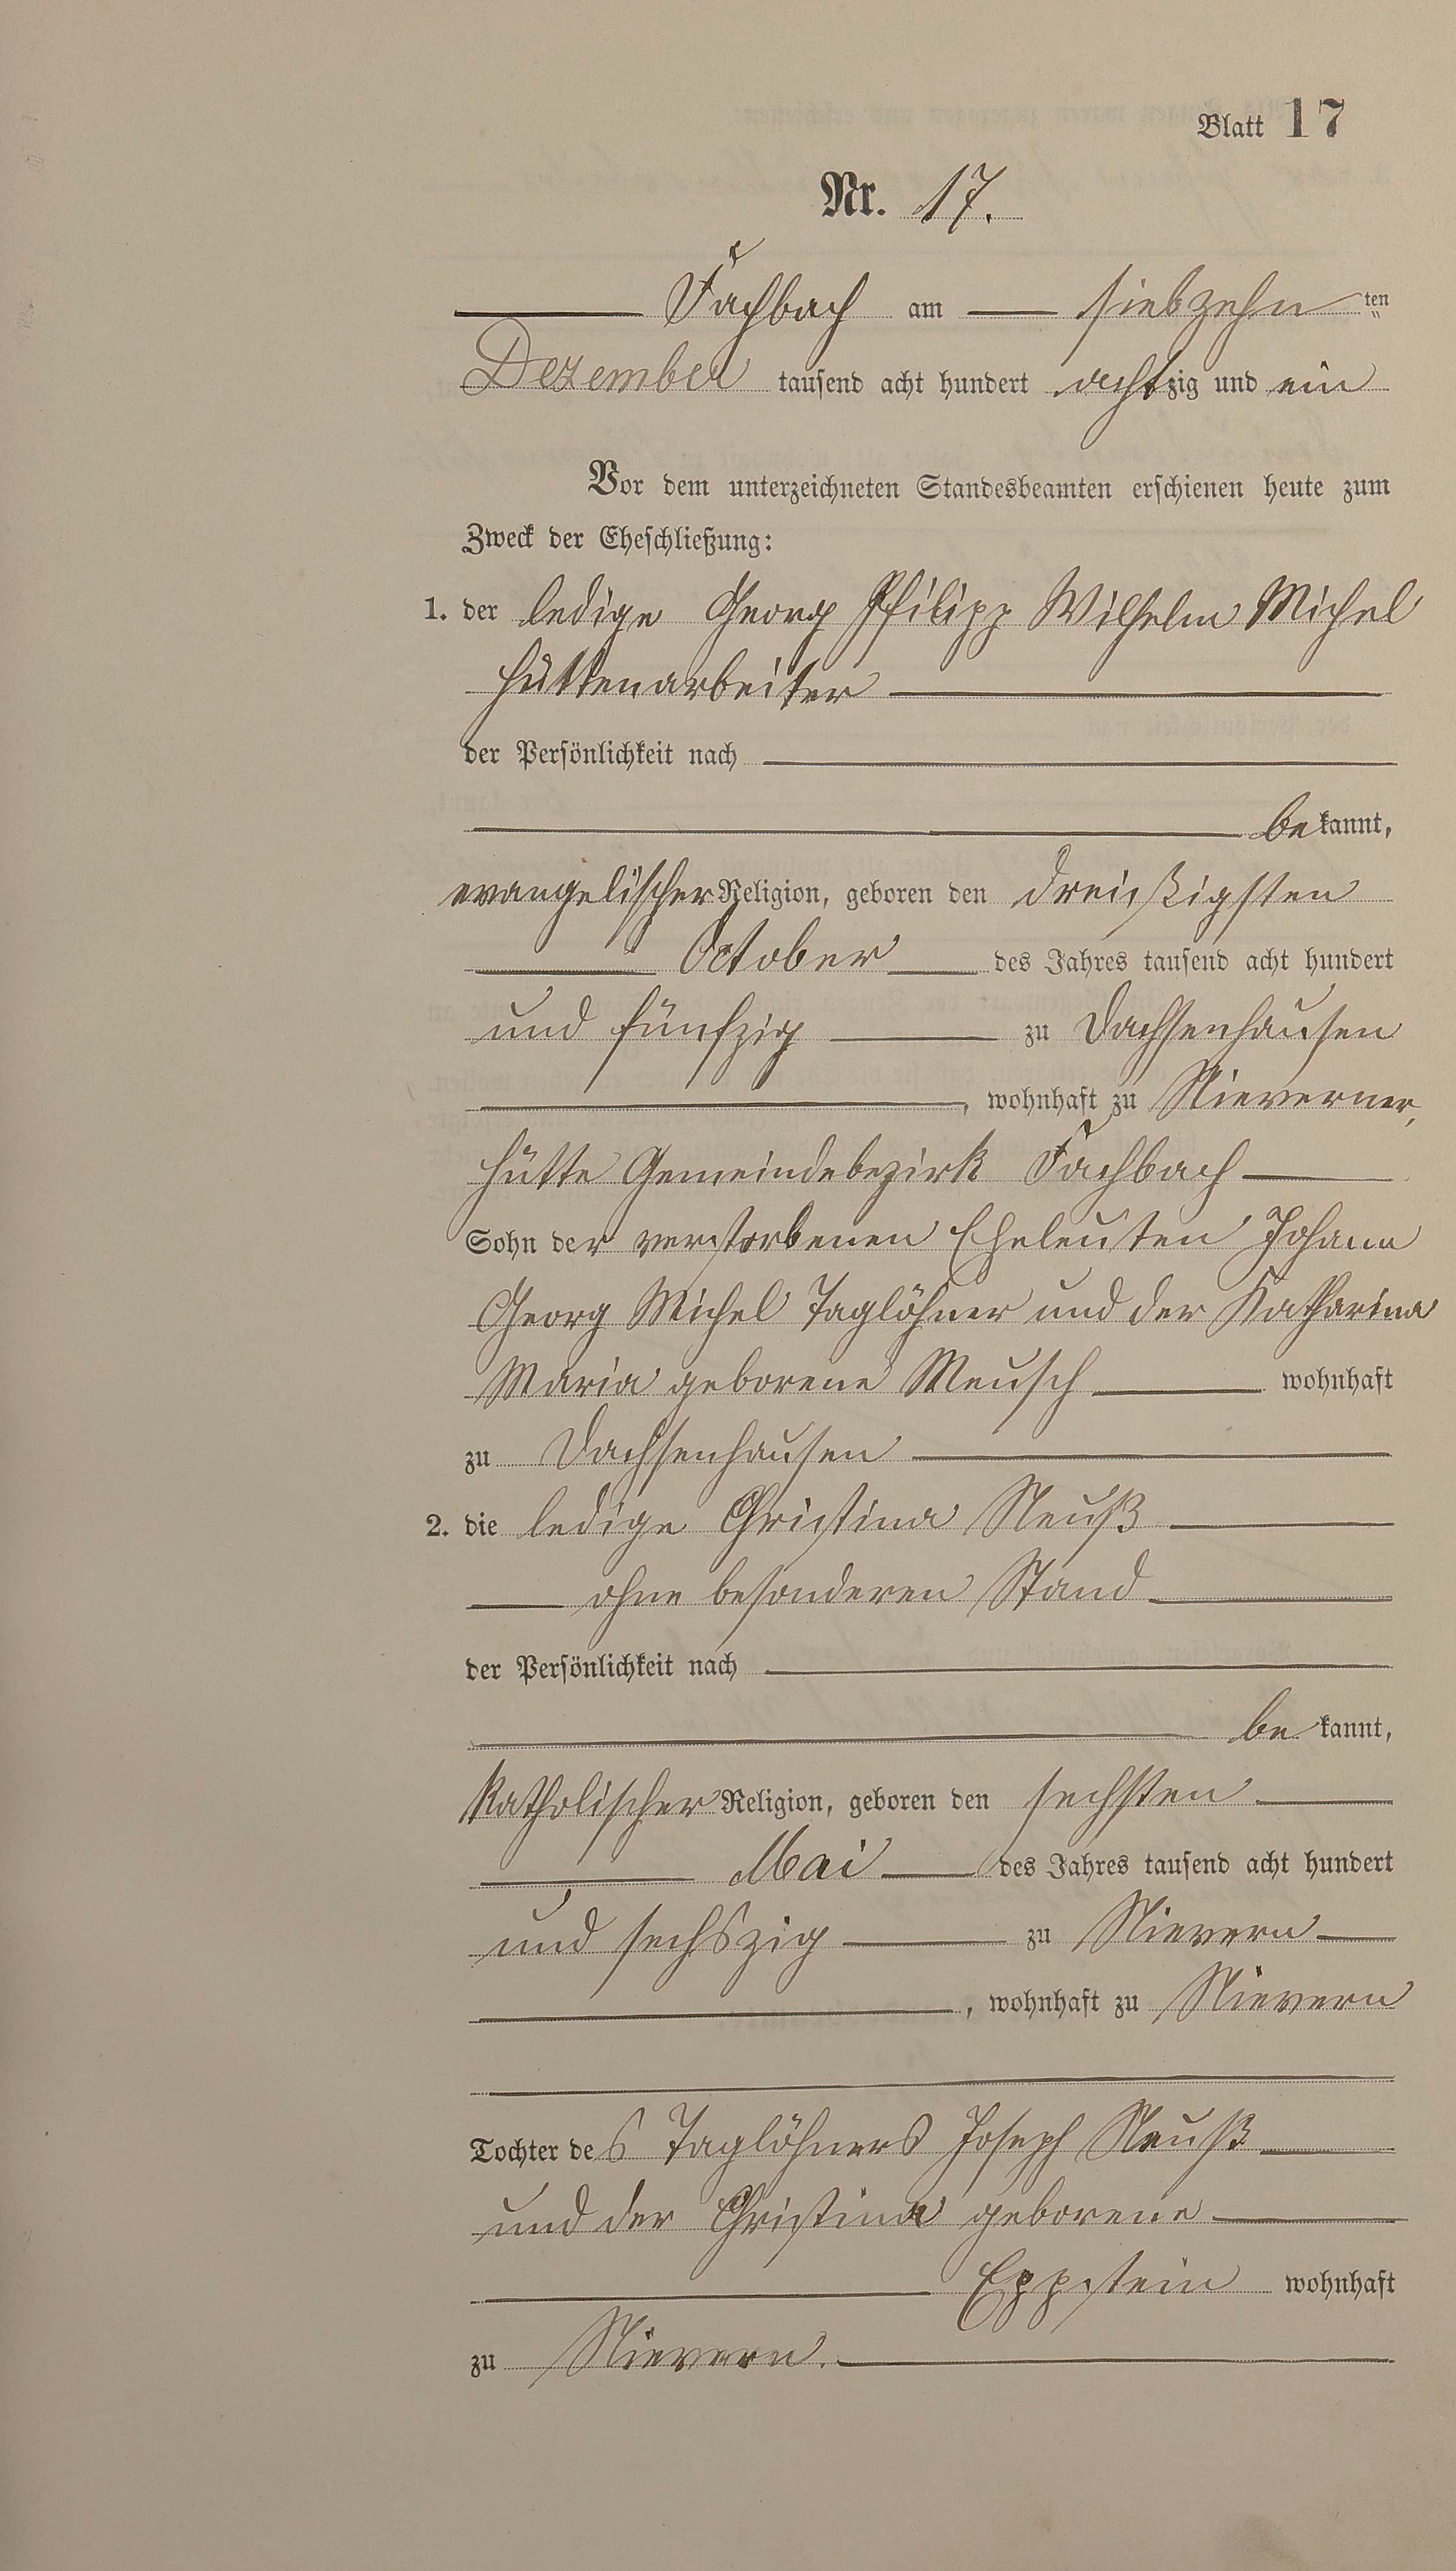 Blatt 17
Nr. 17.
Fachbach am siebzehnten
Dezember tausend acht hundert achtzig und ein
Vor dem unterzeichneten Standesbeamten erschienen heute zum
Zweck der Eheschließung:
1. der ledige Georg Philipp Wilhelm Michel
Hüttenarbeiter
der Persönlichkeit nach
bekannt,
evangelischer Religion, geboren den dreißigsten
October des Jahres tausend acht hundert
und fünfzig zu Dachsenhausen
, wohnhaft zu Nieverner,
hütte Gemeindebezirk Fachbach
Sohn der verstorbenen Eheleuten Johann
Georg Michel Taglöhner und der Katharina
Maria geborene Meusch wohnhaft
zu Dachsenhausen
2. die ledige Christina Neuß
ohne besonderen Stand
der Persönlichkeit nach
bekannt,
katholischer Religion, geboren den sechsten
Mai des Jahres tausend acht hundert
und sechszig zu Nievern
, wohnhaft zu Nievern
Tochter des Taglöhners Joseph Neuß
und der Christina geborene
Eppstein wohnhaft
zu Nievern.